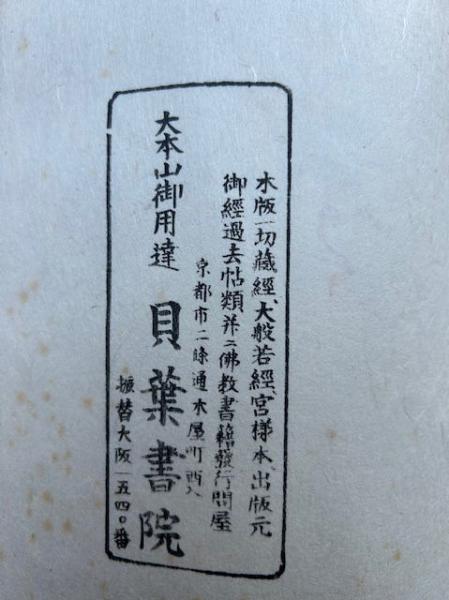 木版一切藏經、大般若經、宮様本、出版元
御經過去帖類并ニ佛教書籍發行問屋
京都市二條通木屋町西入
大本山御用達 貝葉書院
振替大阪一五四〇番